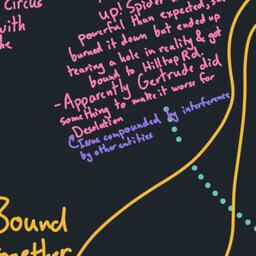 Circus
with
up! Spider
powerful than expected, so
burned it down but ended up
tearing a hole in reality & got
bound to Hilltop Rd.
- Apparently Gertrude did
something to make it worse for
Desolation
Issue compounded by interference
by other entities
Bound
together